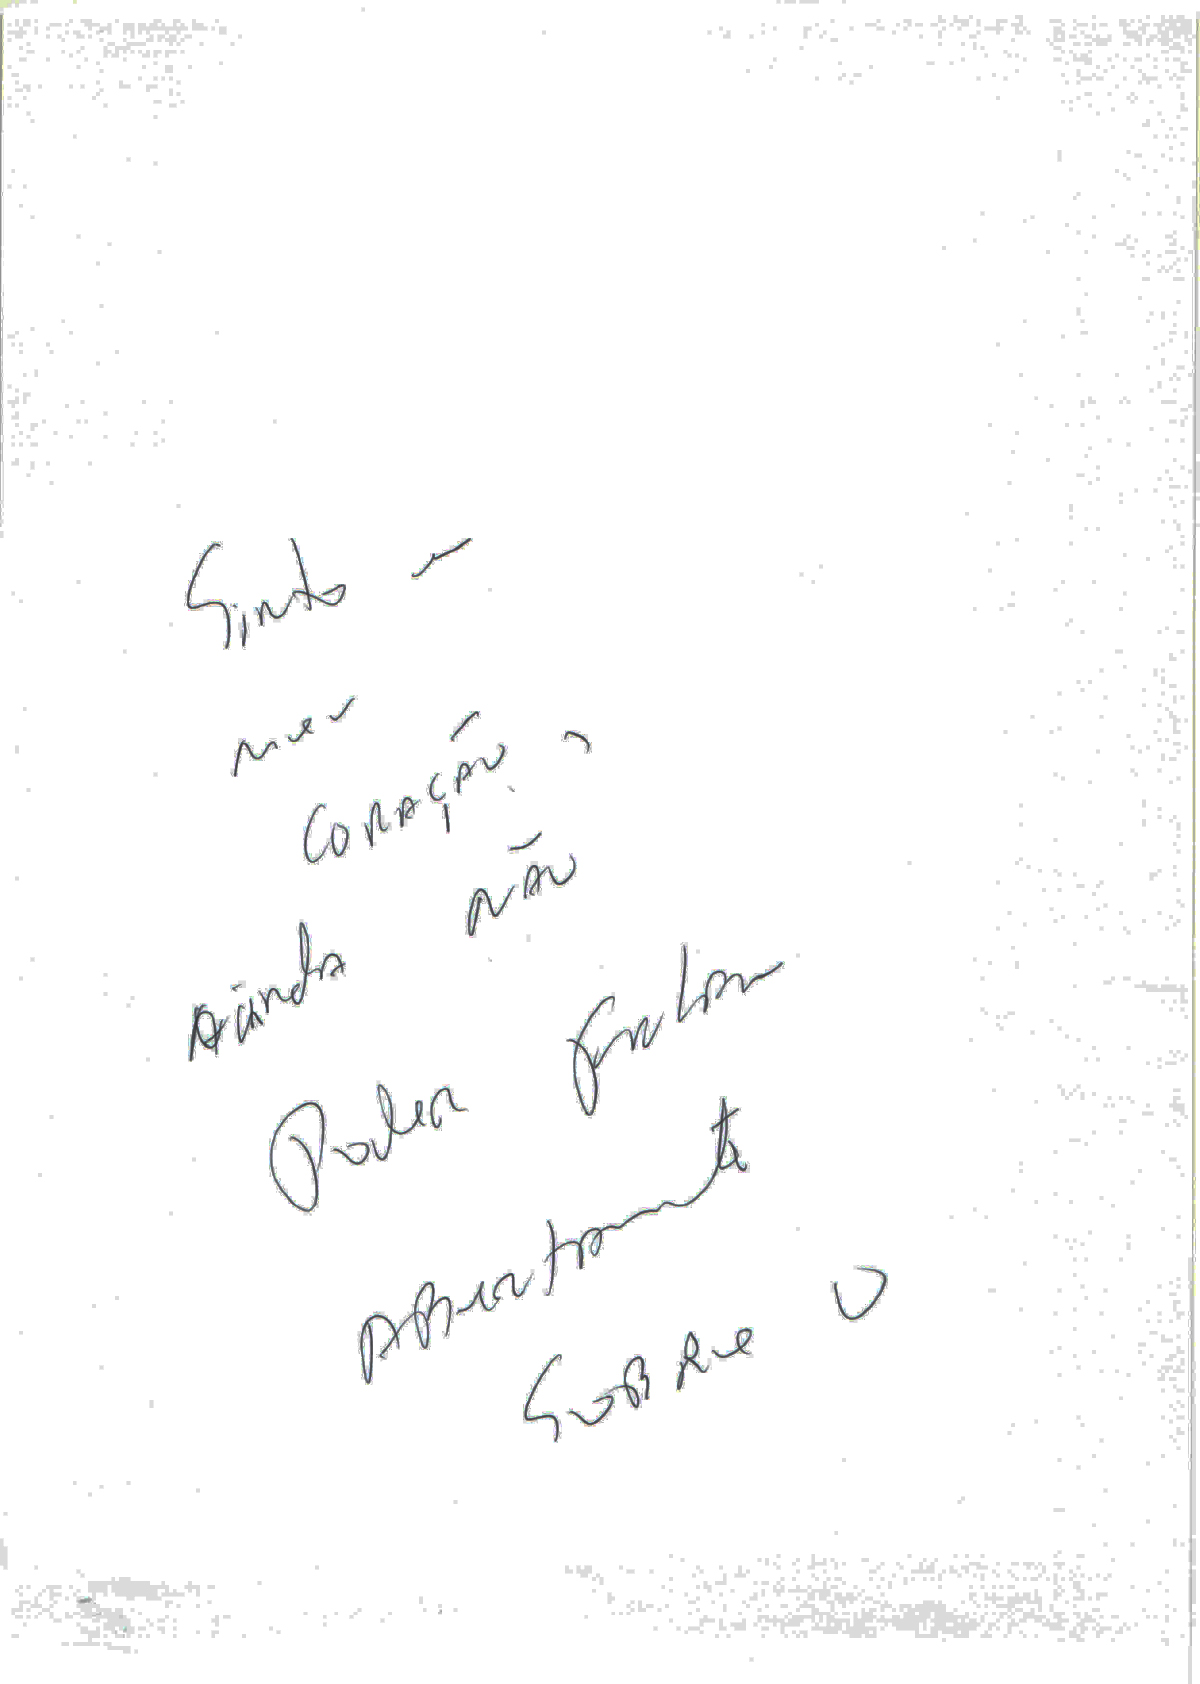 Sinto –
meu
coração,
não
Ainda
Poder falar
Abertamente
sobre o